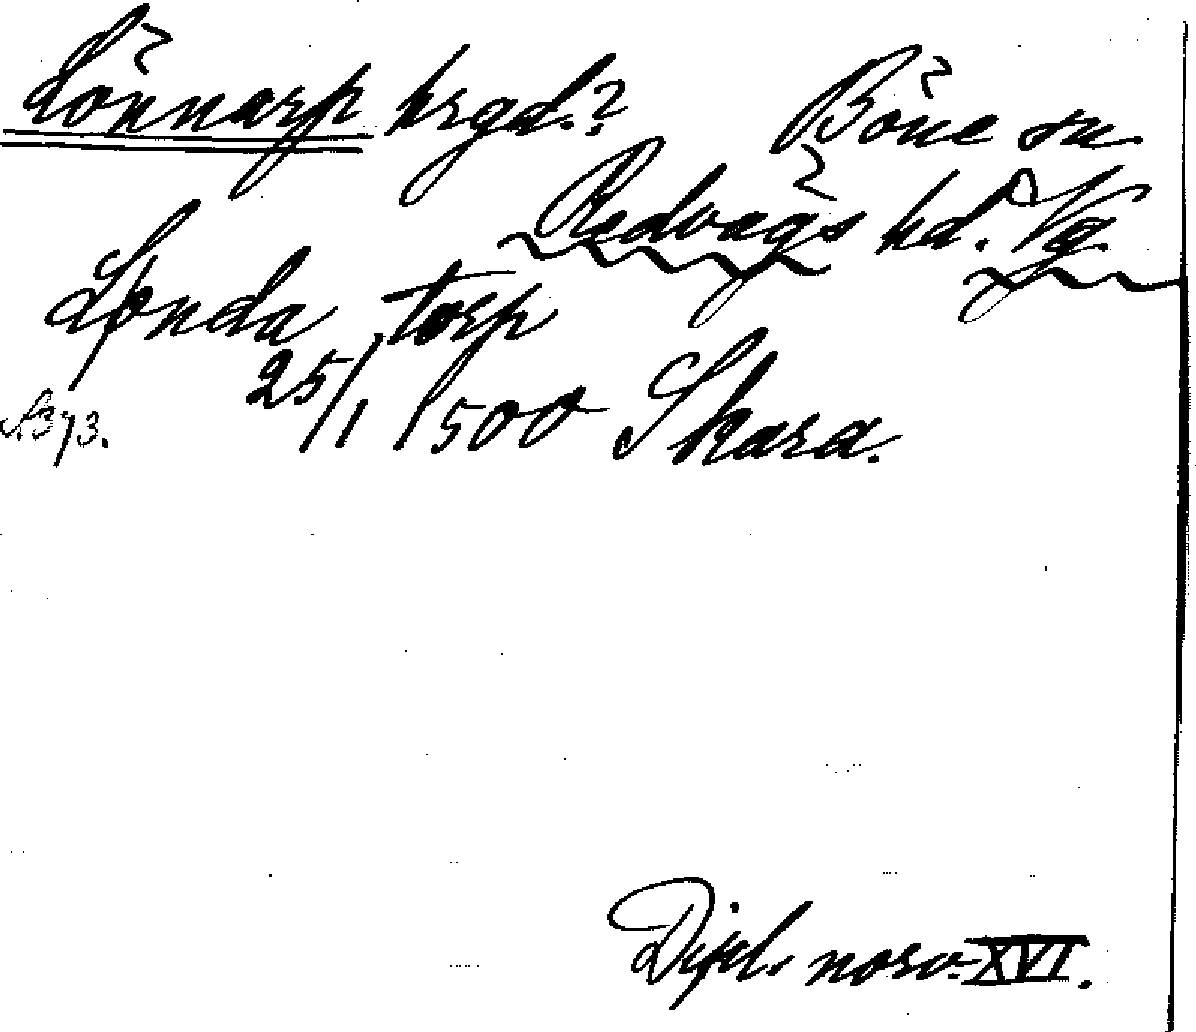 Lönnarp hrgd.? Böne sn
Redvägs hd. Vg.
Lønda torp
25/1 1500 Skara.
s. 373.
Dipl. norv. XVI.